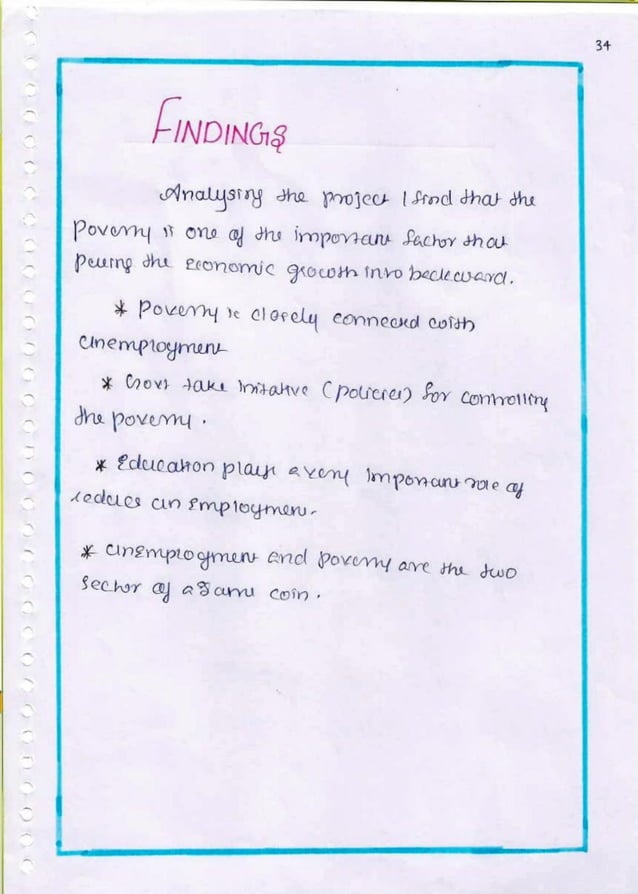 34
FINDINGS
Analysing the project I find that the
Poverty is one of the important factor that
the economic growth into backward.
* Poverty is closely connected with
unemployment
* Govt take initative (policies) for controlling
the poverty.
* Education plays a very important role of
reduces unemployment.
* unemployment and poverty are the two
sector of a same coin.